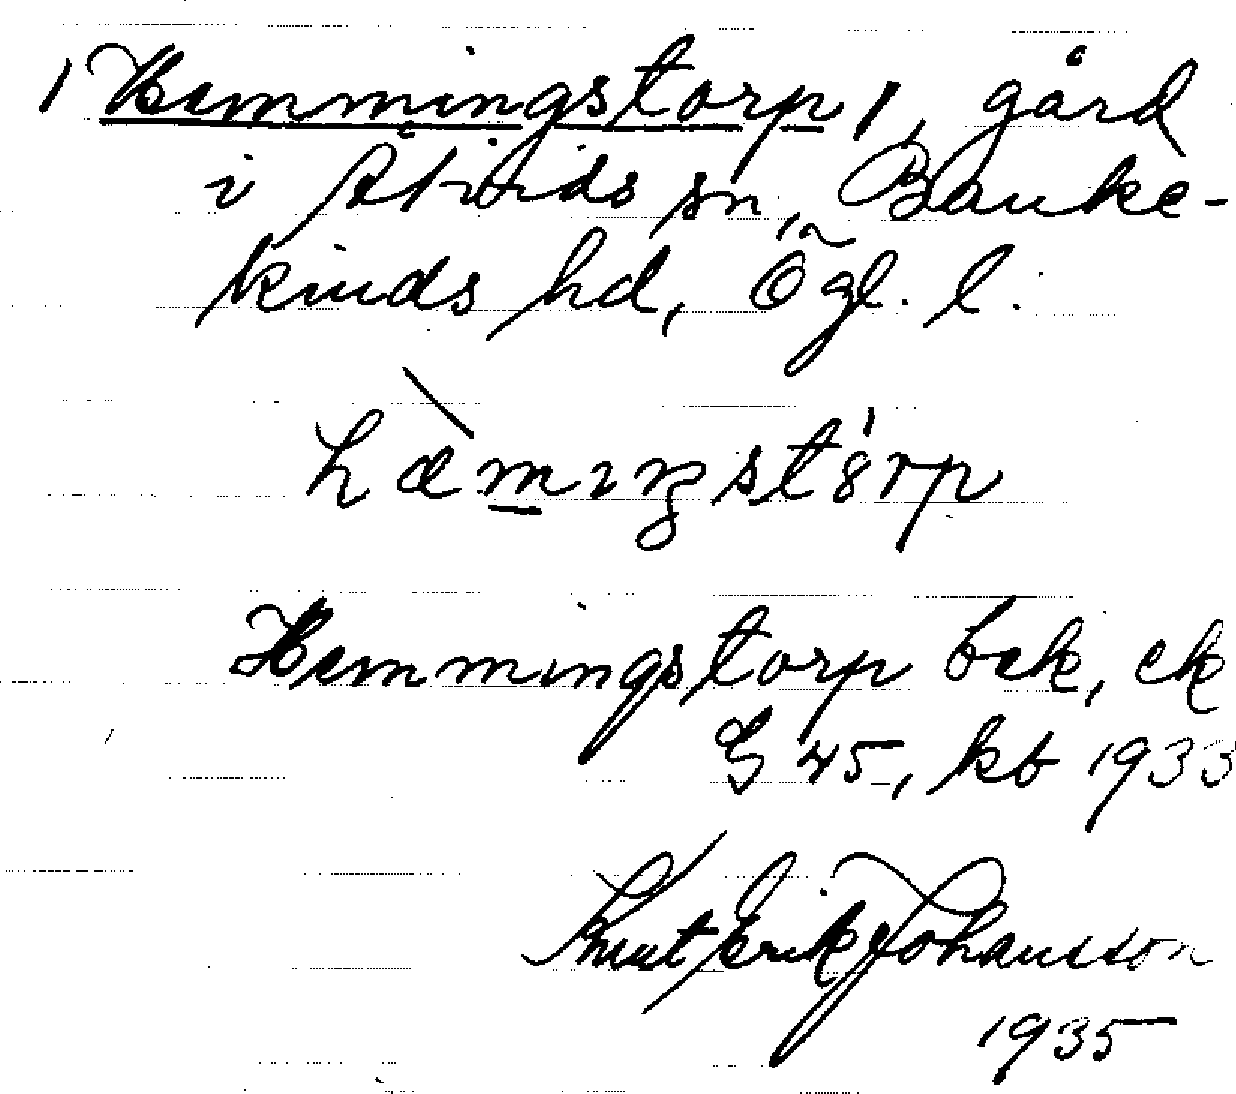 1 Hemmingstorp 1, gård
i Åtvids sn, Banke-
kinds hd, Ögl. l.
hæmıŋstòrp
Hemmingstorp bek, ek
G 45, kb 1933
Knut Erik Johansson
1935